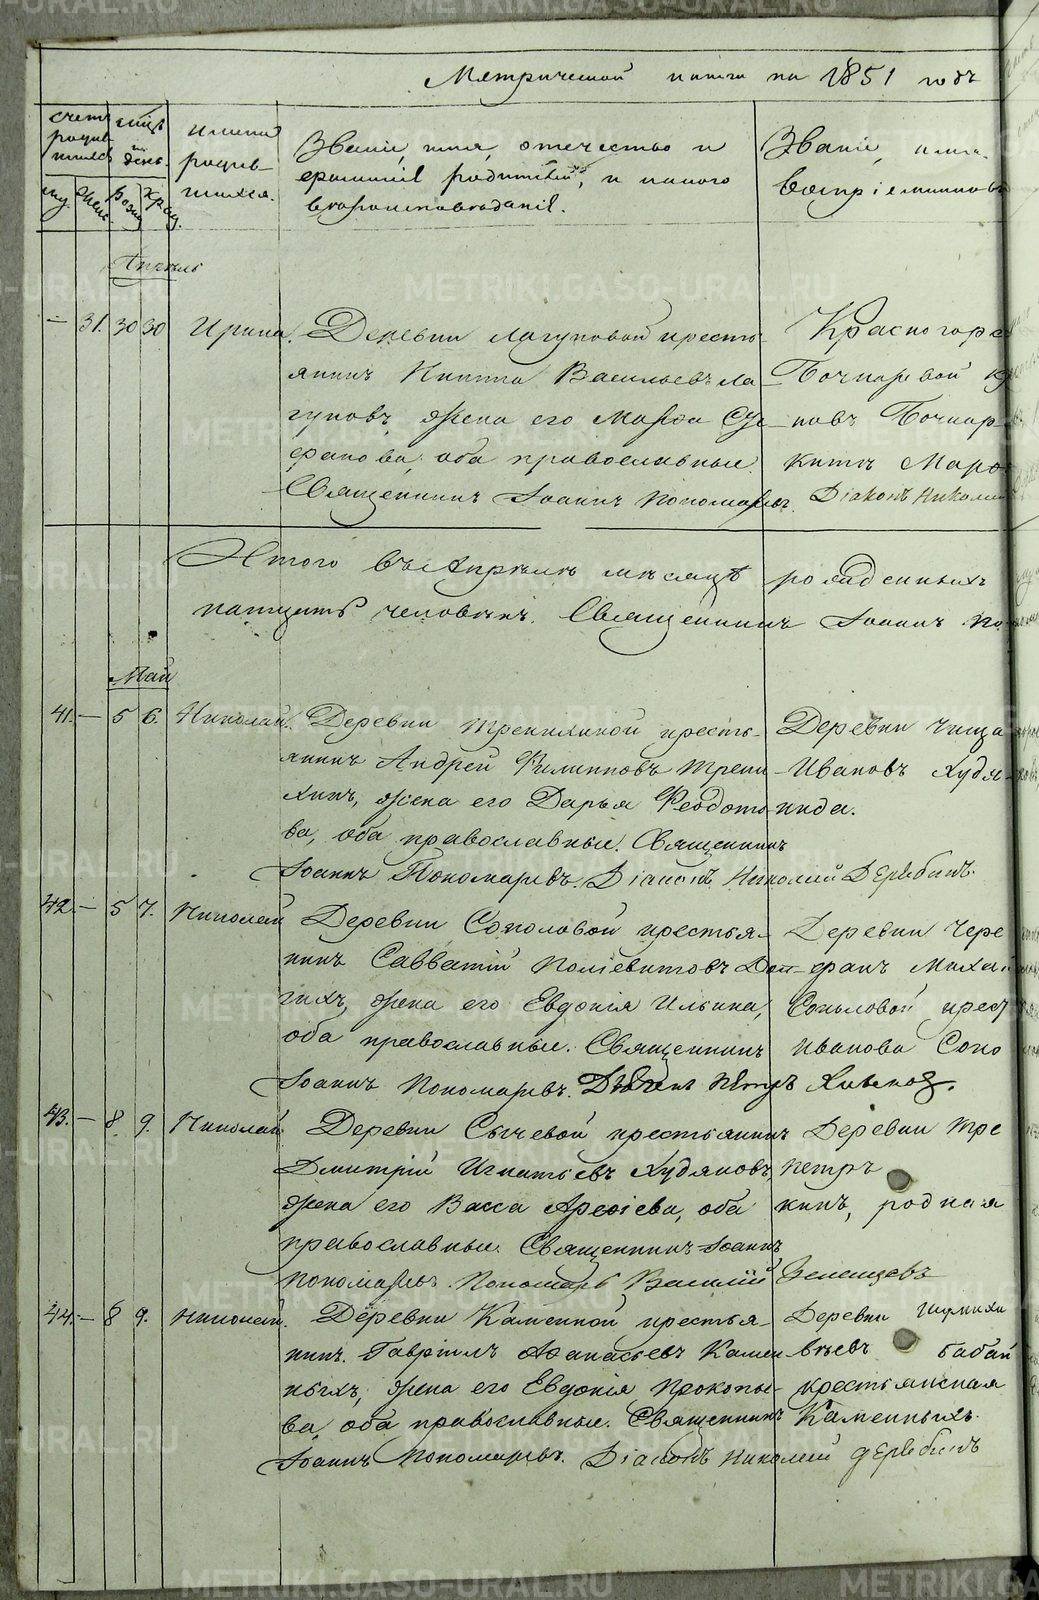 Метрической книги на 1851 годъ
Счетъ родив-шихся
мѣцъ и день
имена родив-шихся.
Званіе, имя, отчество и
фамилія родителей, и какого
вѣроисповѣданія.
Званіе, имя,
воспріемниковъ
муж. жен. рожд. крещ.
Апрѣль
— 31. 30 30 Ирина. Деревни Лагуновой кресть-
янинъ Никита Васильевъ Ла-
гуновъ, жена его Марѳа Сте-
фанова, оба православные.
Священникъ Іоаннъ Пономаревъ. Діаконъ Николай
Красногорс
Бочкаревой кр
новъ Бочкар
китъ Мар
Итого въ Апрѣлѣ мѣсяцѣ рожденныхъ
человѣкъ. Священникъ Іоаннъ По
Май
41. — 5 6. Николай. Деревни Трепихиной кресть-
янинъ Андрей Филипповъ Трепи-
хинъ, жена его Дарья Ѳеодото-
ва, оба православные. Священникъ
Іоаннъ Пономаревъ. Діаконъ Николай Дерябинъ.
Деревни Чища
Ивановъ Худя
кида.
42. — 5 7. Николай Деревни Соколовой крестья-
нинъ Савватій Поліевктовъ
жена его Евдокія Ильина,
оба православные. Священникъ
Іоаннъ Пономаревъ. Дьячекъ Петръ
Деревни Чере
фанъ Михаи
Соколовой крест
Иванова Соко
43. — 8. 9. Николай Деревни Сычевой крестьянинъ
Дмитрій Игнатьевъ Худяковъ,
жена его Васса Арефіева, оба
православные. Священникъ Іоаннъ
Пономаревъ. Пономарь Василій Зеленцевъ
Деревни Тре
Петръ
кинъ, родная
44. — 8 9. Николай. Деревни Каменной крестья-
нинъ Гавріилъ Аѳанасьевъ Камен-
ныхъ, жена его Евдокія Прокопье-
ва, оба православные. Священникъ
Іоаннъ Пономаревъ. Діаконъ Николай Дерябинъ
Деревни
вѣевъ Бабай
крестьянская
Каменныхъ.
METRIKI.GASO-URAL.RU